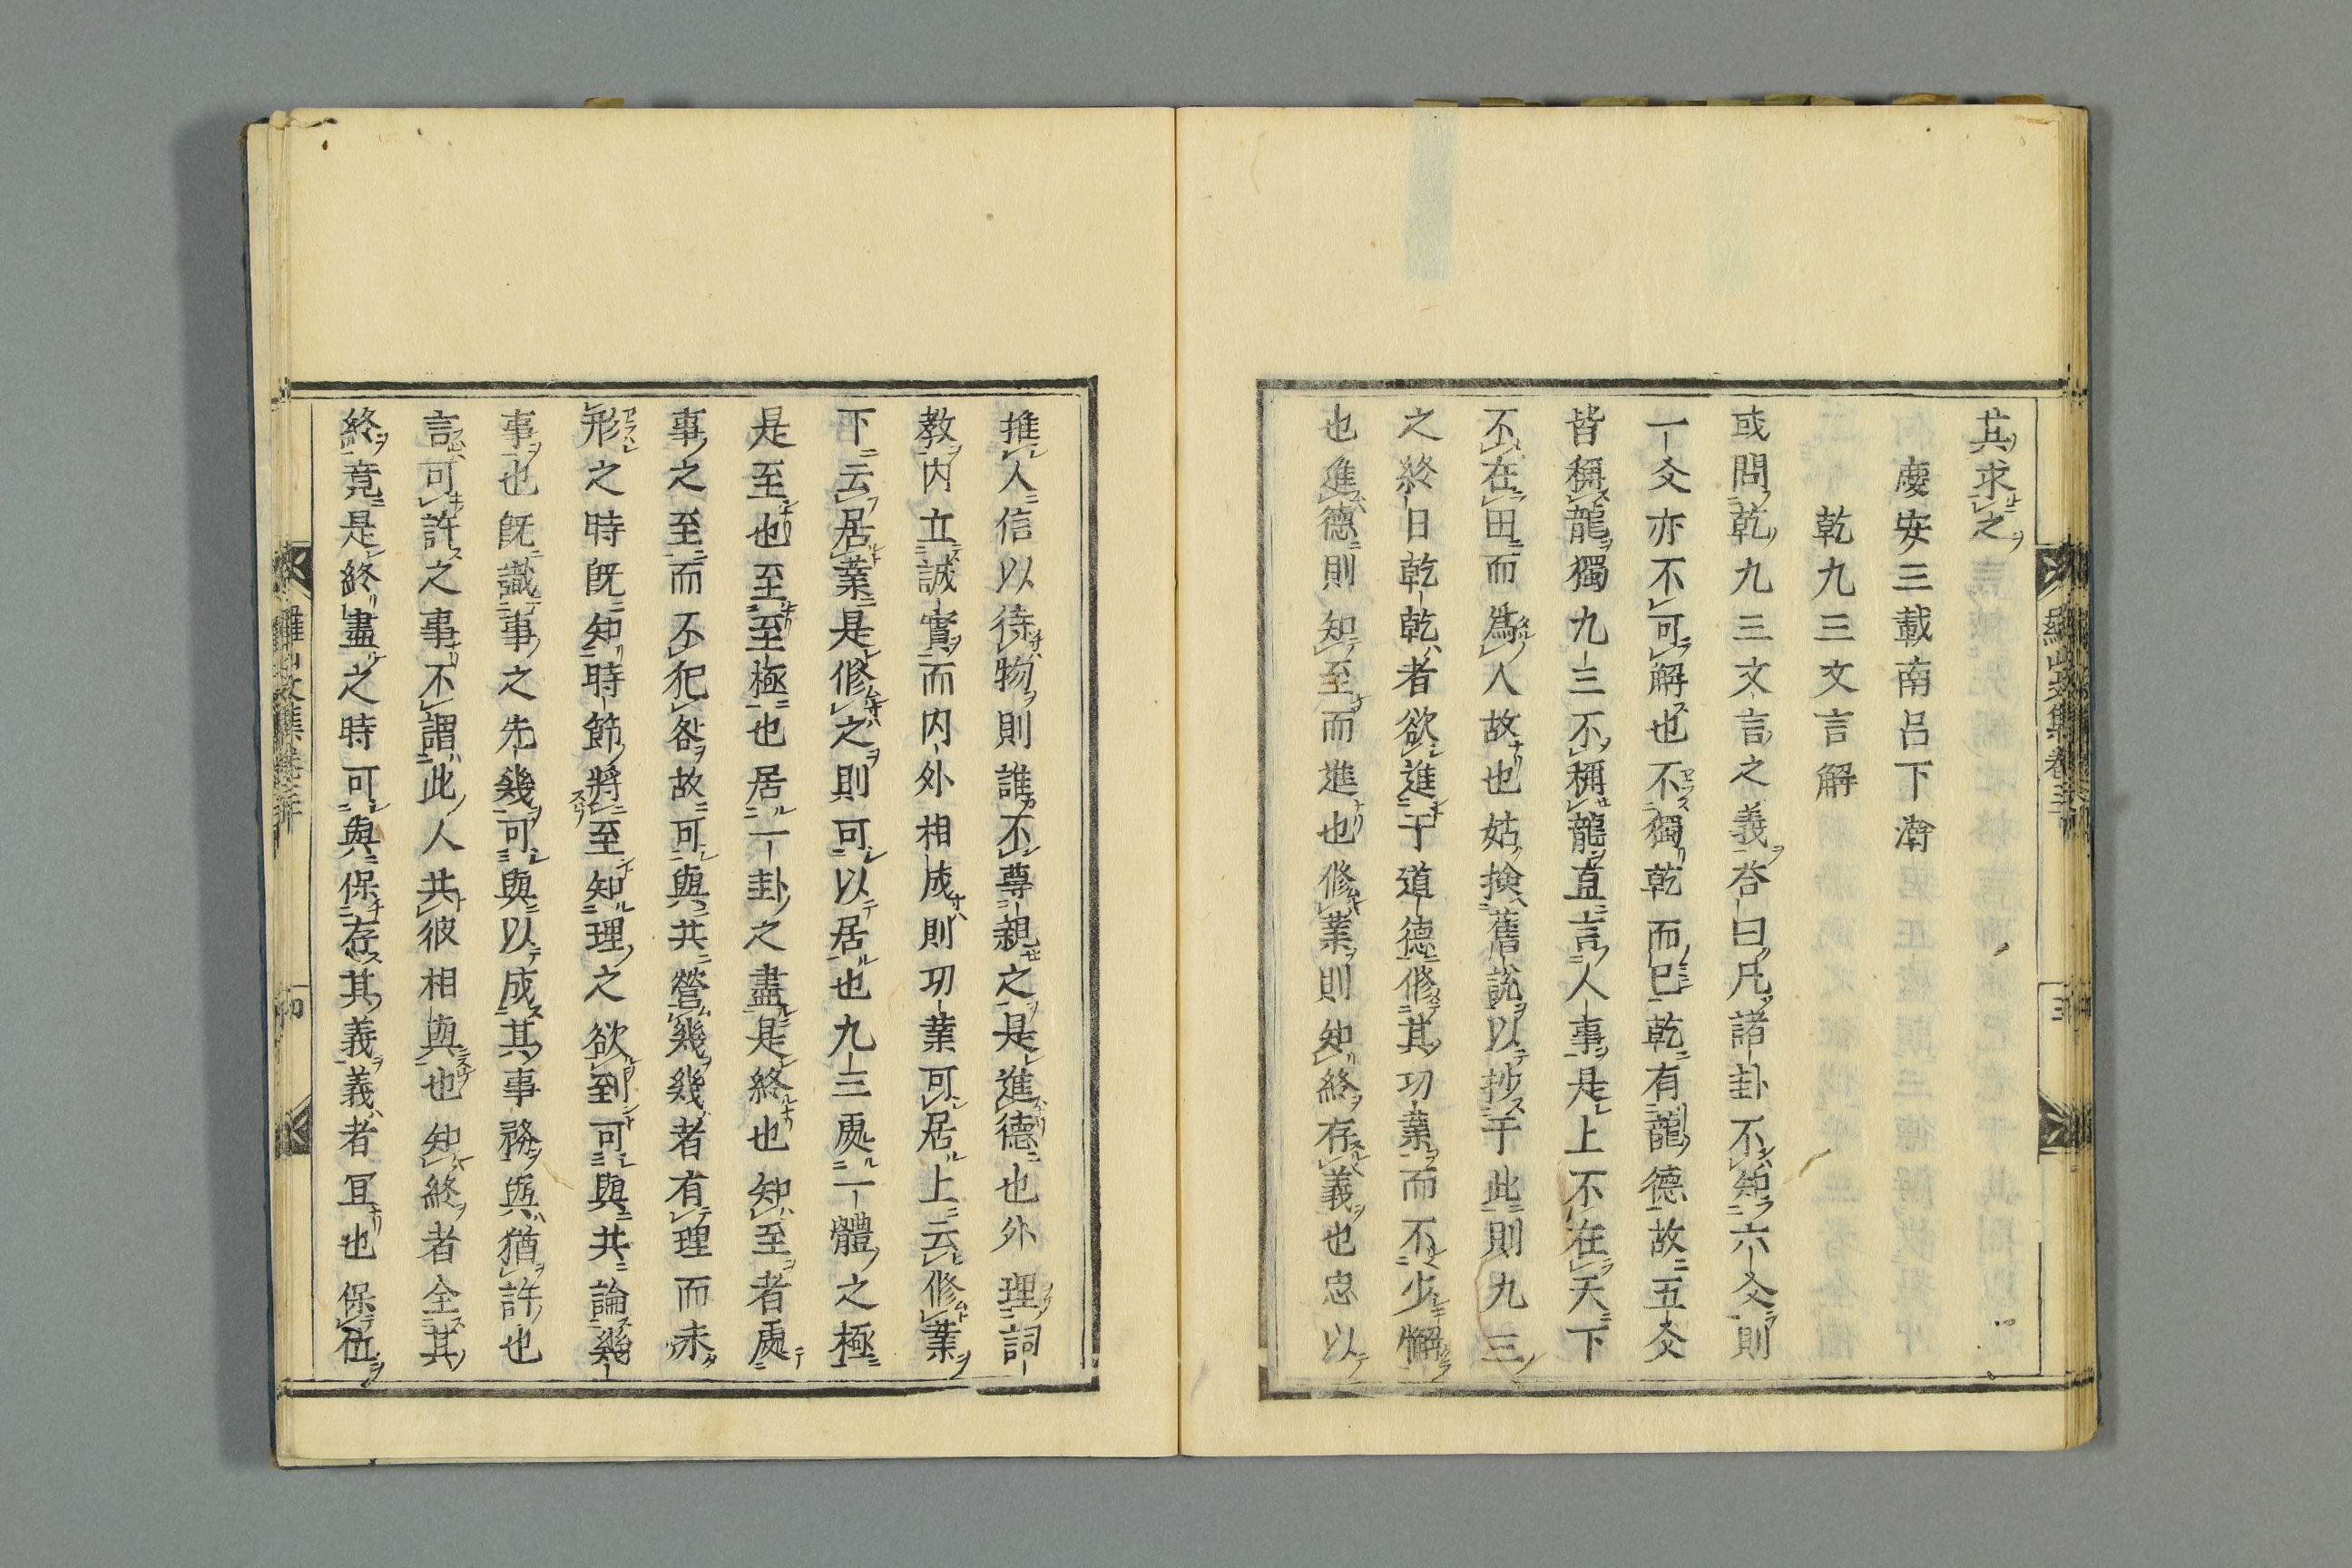 其求之
慶安三載南呂下澣
乾九三文言解
或問乾九三文言之義荅曰凡諸卦不知六爻則
一爻亦不可解也不獨乾而已乾有龍德故五爻
皆稱龍獨九三不稱龍直言人事是上不在天下
不在田而爲人故也姑撿舊說以抄于此則九三
之終日乾乾者欲進于道德修其功業而不少懈
也進德則知至而進也修業則知終存義也忠以
推人信以待物則誰不尊親之是進德也外理詞
教内立誠實而内外相成則功業可居上云修業
下云居業是修之則可以居也九三處一體之極
是至也至至極也居一卦之盡是終也知至者處
事之至而不犯咎故可與共營幾幾者有理而未
形之時既知時節將至知理之欲到可與共論幾
事也既識事之先幾可與以成其事務與猶許也
言可許之事不謂此人共彼相與也知終者全其
終竟是終盡之時可與保存其義義者冝也保位
羅山文集卷三十
三
羅山文集卷三十